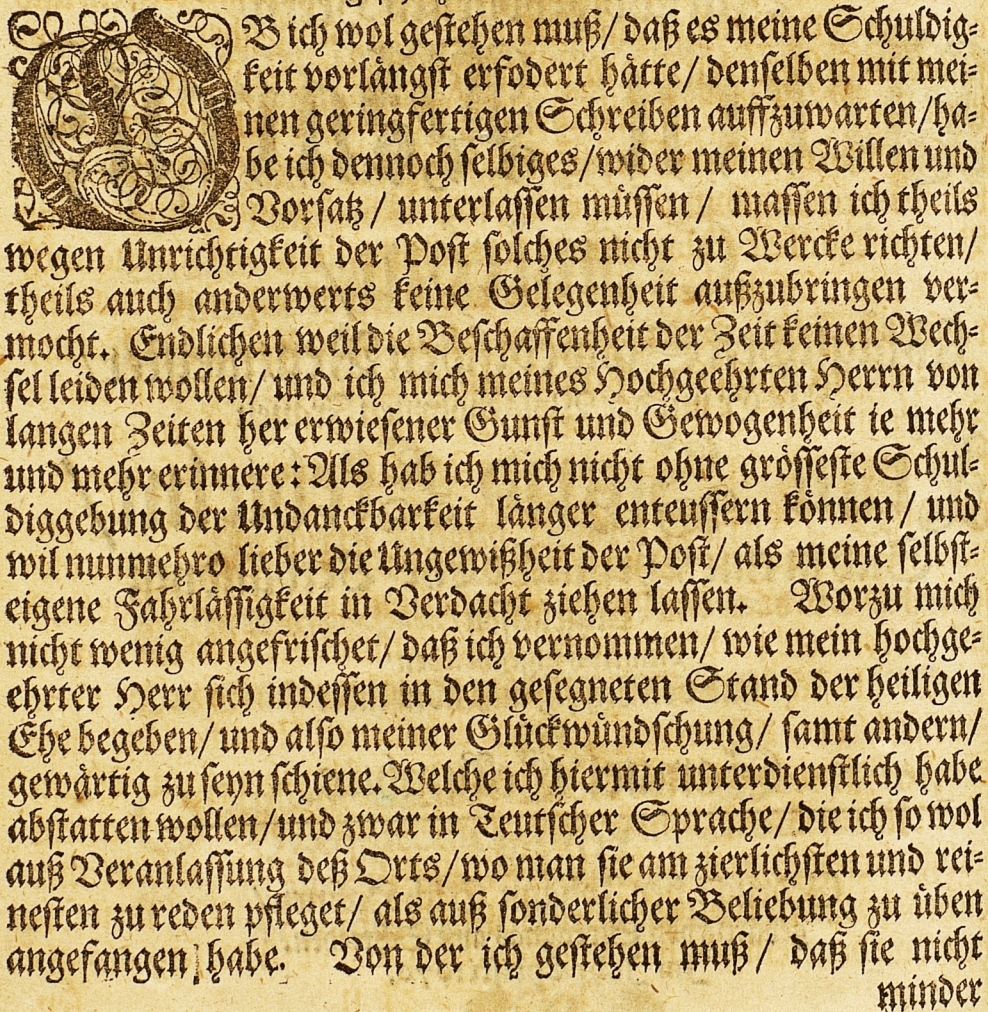 OB ich wol gestehen muß/ daß es meine Schuldig-
keit vorlängst erfodert hätte/ denselben mit mei-
nen geringfertigen Schreiben auffzuwarten/ ha-
be ich dennoch selbiges/ wider meinen Willen und
Vorsatz/ unterlassen müssen/ massen ich theils
wegen Unrichtigkeit der Post solches nicht zu Wercke richten/
theils auch anderwerts keine Gelegenheit außzubringen ver-
mocht. Endlichen weil die Beschaffenheit der Zeit keinen Wech-
sel leiden wollen/ und ich mich meines Hochgeehrten Herrn von
langen Zeiten her erwiesener Gunst und Gewogenheit ie mehr
und mehr erinnere: Als hab ich mich nicht ohne grösseste Schul-
diggebung der Undanckbarkeit länger enteussern können/ und
wil nunmehro lieber die Ungewißheit der Post/ als meine selbst-
eigene Fahrlässigkeit in Verdacht ziehen lassen. Worzu mich
nicht wenig angefrischet/ daß ich vernommen/ wie mein hochge-
ehrter Herr sich indessen in den gesegneten Stand der heiligen
Ehe begeben/ und also meiner Glückwündschung/ samt andern/
gewärtig zu seyn schiene. Welche ich hiermit unterdienstlich habe
abstatten wollen/ und zwar in Teutscher Sprache/ die ich so wol
auß Veranlassung deß Orts/ wo man sie am zierlichsten und rei-
nesten zu reden pfleget/ als auß sonderlicher Beliebung zu üben
angefangen habe. Von der ich gestehen muß/ daß sie nicht
minder